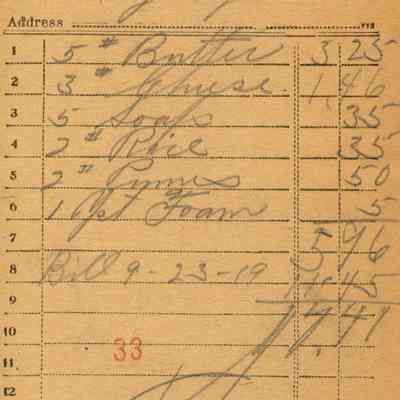 Address
1 5 # Butter 3 25
2 3 # Cheese 1 46
3 5 Soaps 35
4 2 # Rice 35
5 2 " Prunes 50
6 1 pt Foam 5
7 5 96
8 Bill 9-23-19 11 45
9 17 41
10
33
11
12